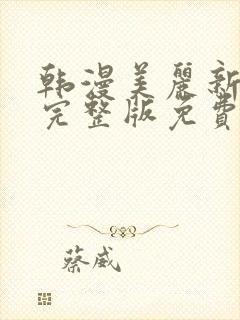 韩漫美麗新
完整版免費
蔡威